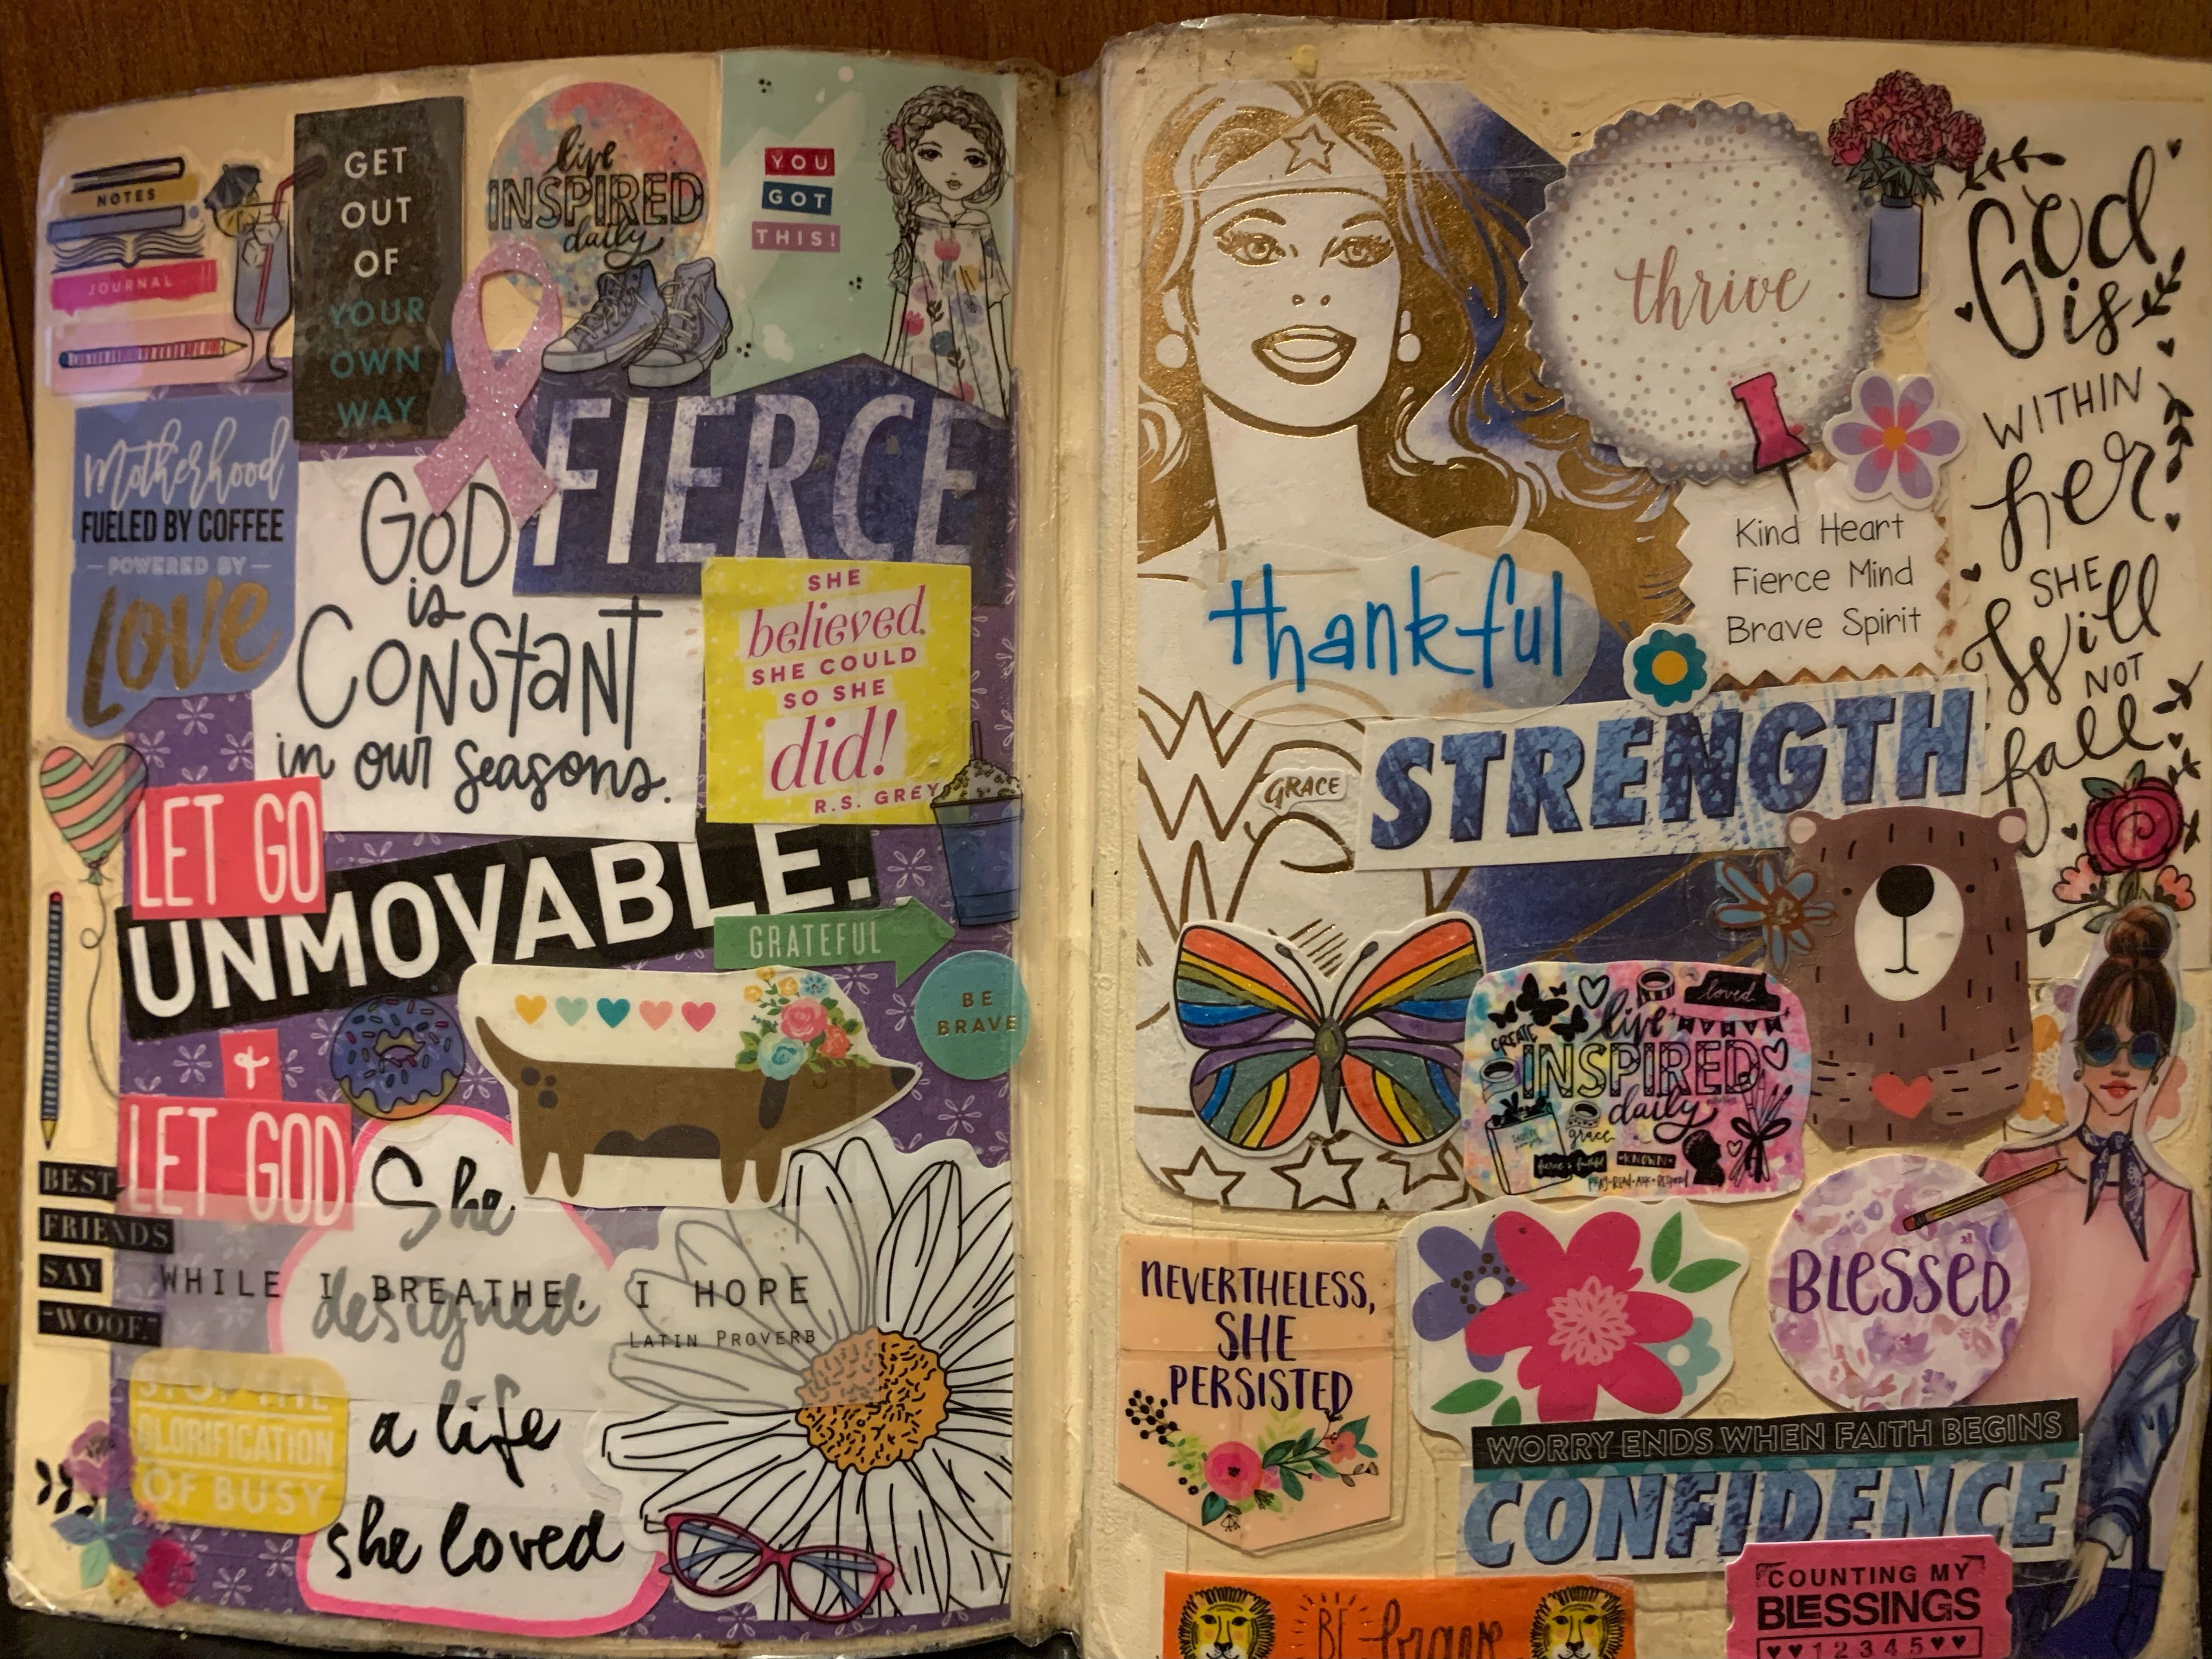 NOTES
JOURNAL
GET
OUT
OF
YOUR
OWN
WAY
live
INSPIRED
daily
YOU
GOT
THIS!
Motherhood
FUELED BY COFFEE
POWERED BY
LOVE
FIERCE
GOD
is
CONSTANT
in our seasons.
SHE
believed
SHE COULD
SO SHE
did!
R.S. GREY
LET GO
UNMOVABLE.
GRATEFUL
BE
BRAVE
+
LET GOD
BEST
FRIENDS
SAY
"WOOF."
She
designed
a life
she loved
WHILE I BREATHE, I HOPE
LATIN PROVERB
STOP THE
GLORIFICATION
OF BUSY
thrive
God
is
WITHIN
her
SHE
Will
NOT
fall
Kind Heart
Fierce Mind
Brave Spirit
thankful
STRENGTH
GRACE
loved
CREATE
live
INSPIRED
daily
grace
KNOWN
NEVERTHELESS,
SHE
PERSISTED
BLESSED
WORRY ENDS WHEN FAITH BEGINS
CONFIDENCE
BE brave
COUNTING MY
BLESSINGS
12345